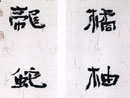 橘柚
龍蛇